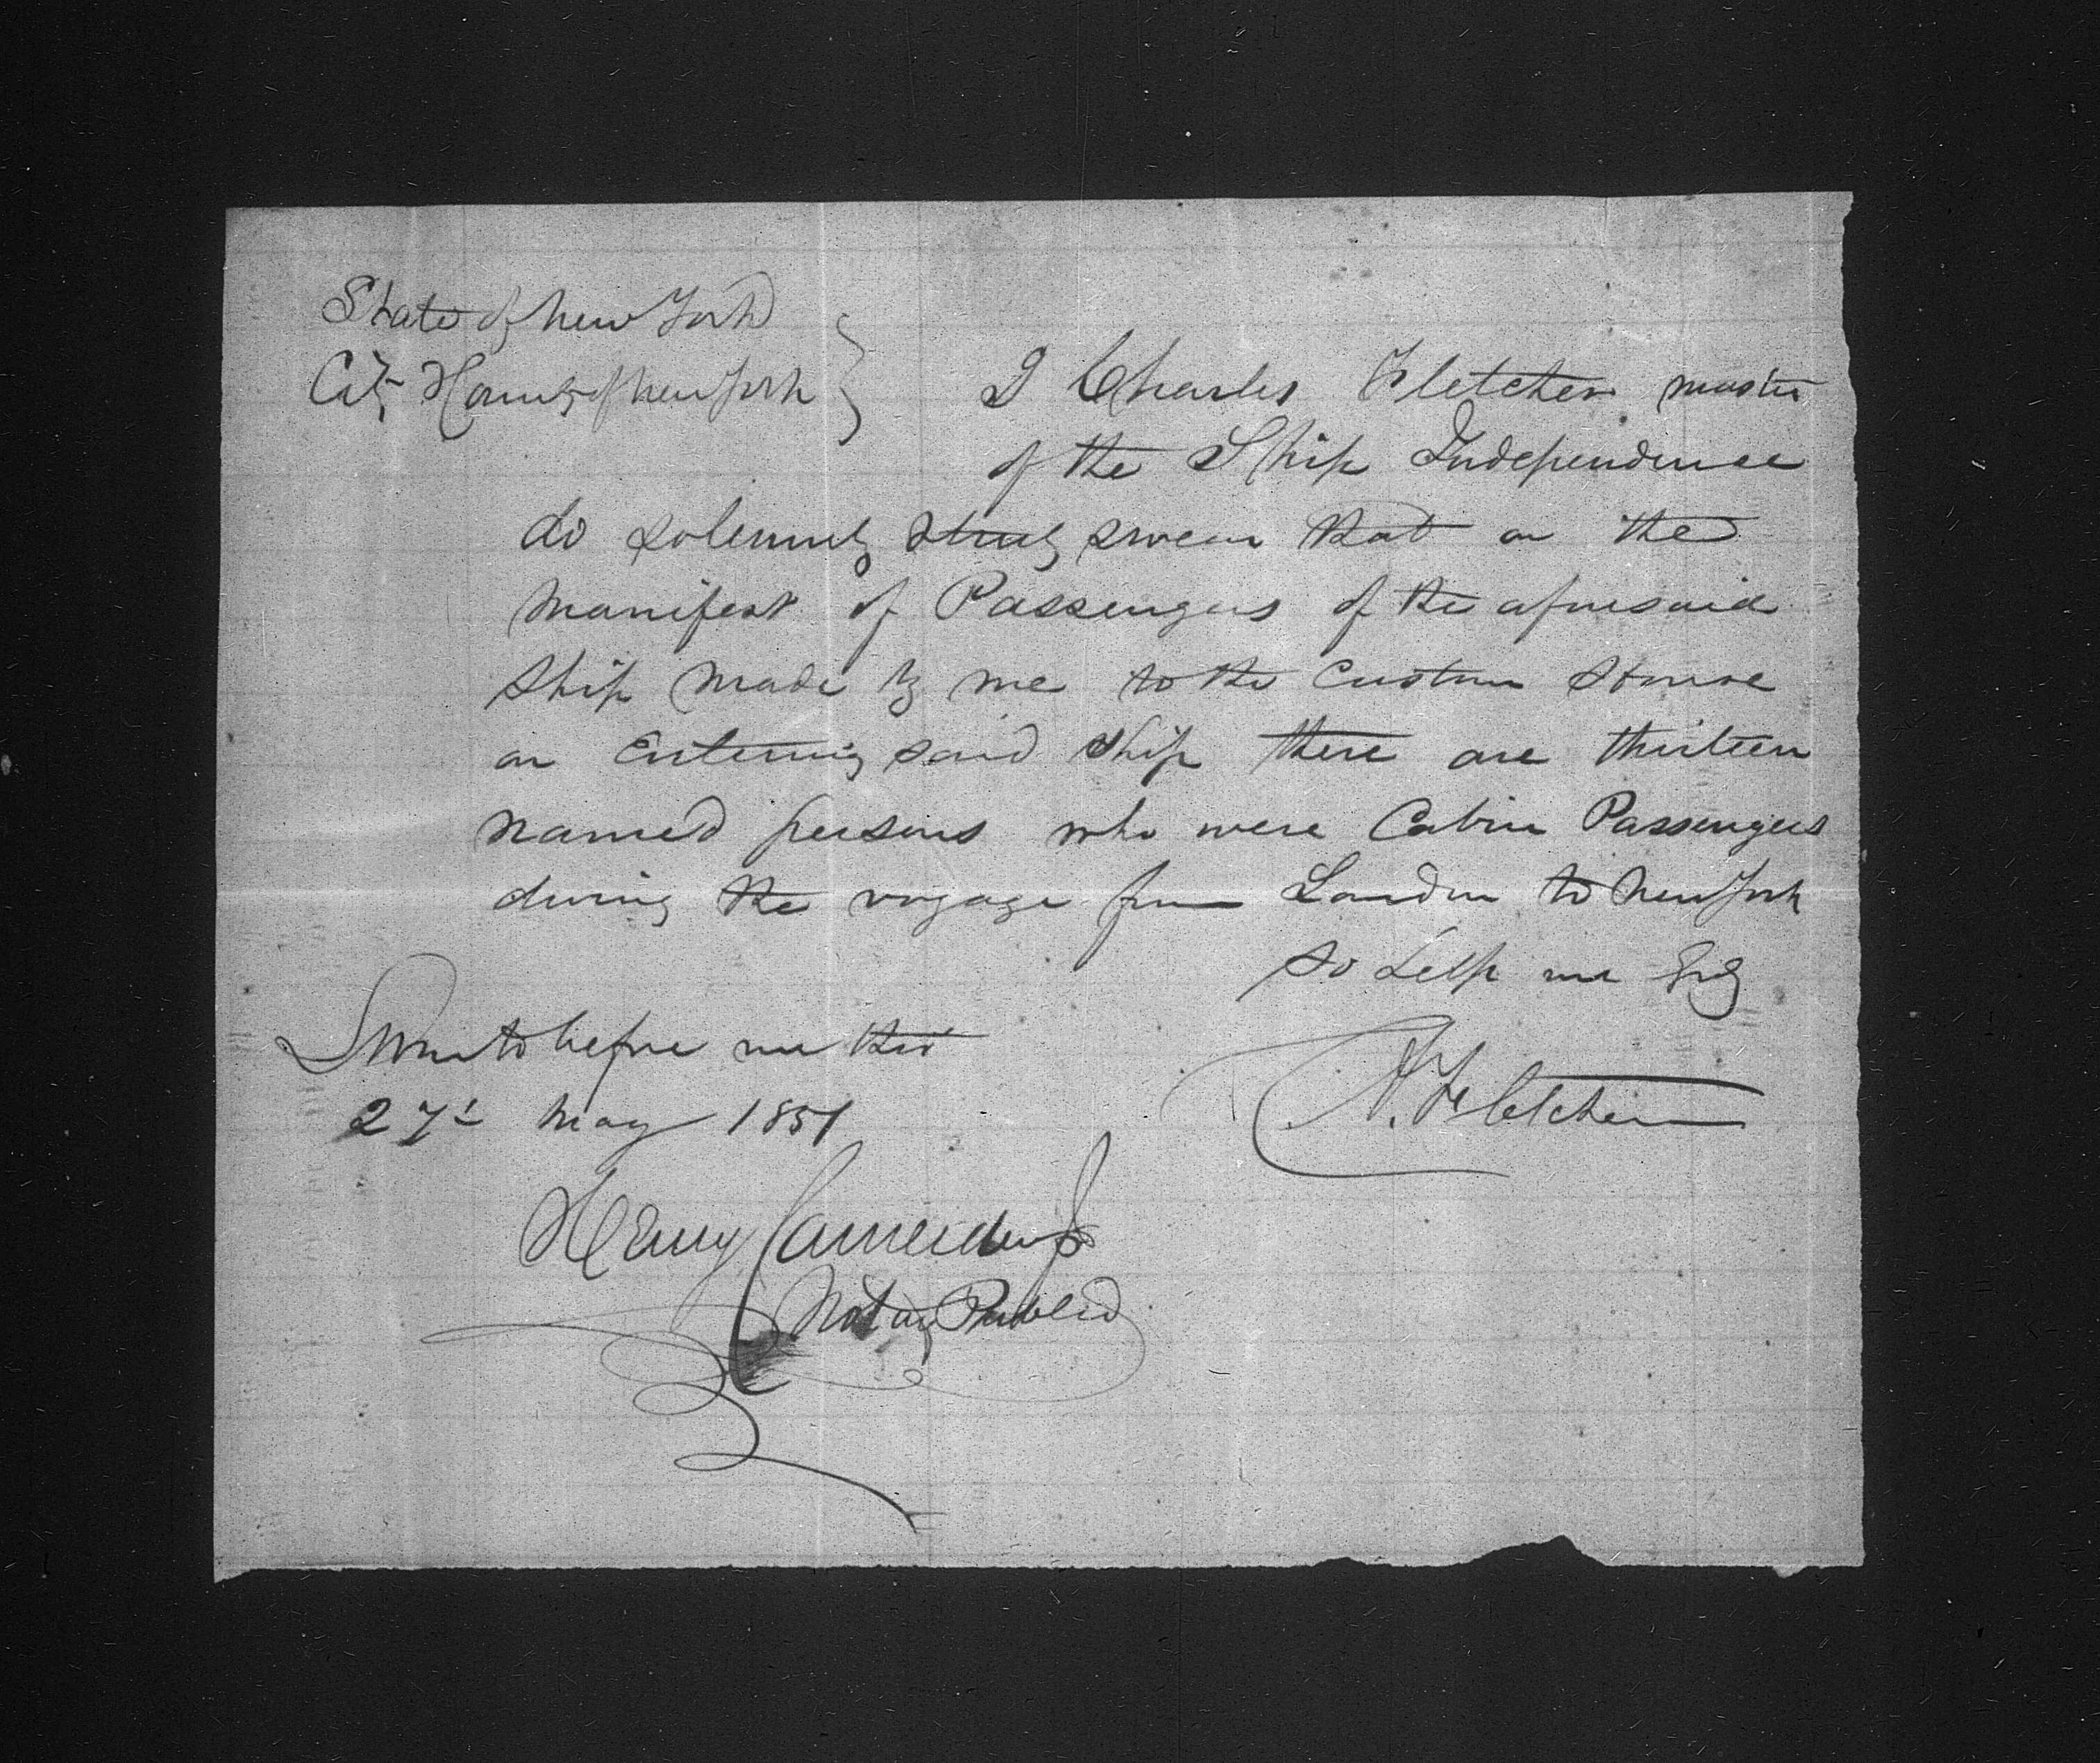 State of New York
City & County of New York
I Charles Fletcher master
of the Ship Independence
do solemnly & truly swear that on the
Manifest of Passengers of the aforesaid
Ship made by me to the Custom House
on Entering said Ship there are thirteen
named persons who were Cabin Passengers
during the voyage from London to New York
so help me God
Sworn to before me this
27th May 1851
Fletcher
Henry Camerden Jr
Notary Public